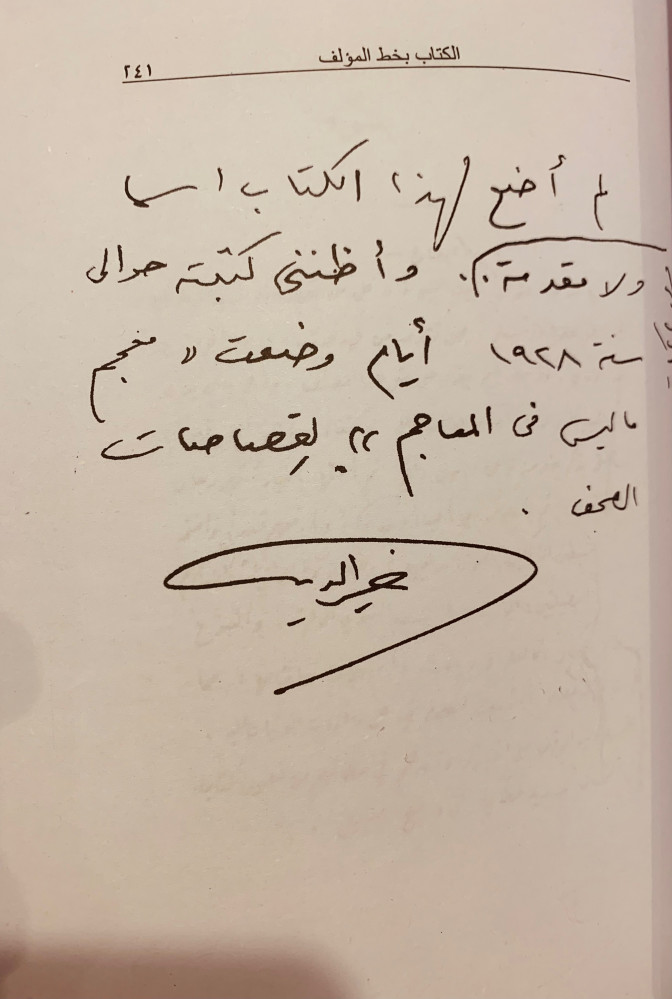 الكتاب بخط المؤلف
٢٤١
لم أضع لهذا الكتاب اسما
ولا مقدمة. وأظنني كتبته حوالى
سنة ١٩٢٨ أيام وضعت «معجم
ماليس فى المعاجم» لقصاصات
الصحف.
خير الدين